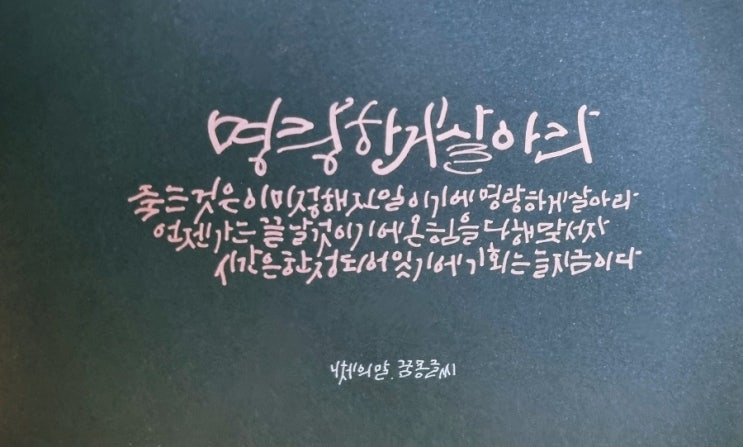 명랑하게 살아라
죽는 것은 이미 정해진 일이기에 명랑하게 살아라
언젠가는 끝날 것이기에 온 힘을 다해 맞서자
시간은 한정되어 있기에 기회는 늘 지금이다
니체의 말. 꿈몽글씨